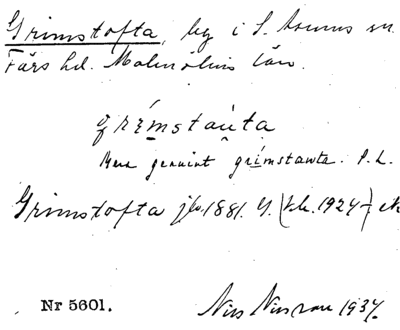 Grimstofta, by i S. Åsums sn.
Färs hd. Malmöhus län.
grímstàu̯ta
Mera genuint grímstawta. P. L.
Grimstofta jb. 1881. G. 1924
Nr 5601.
Nils Nilsson 1937.